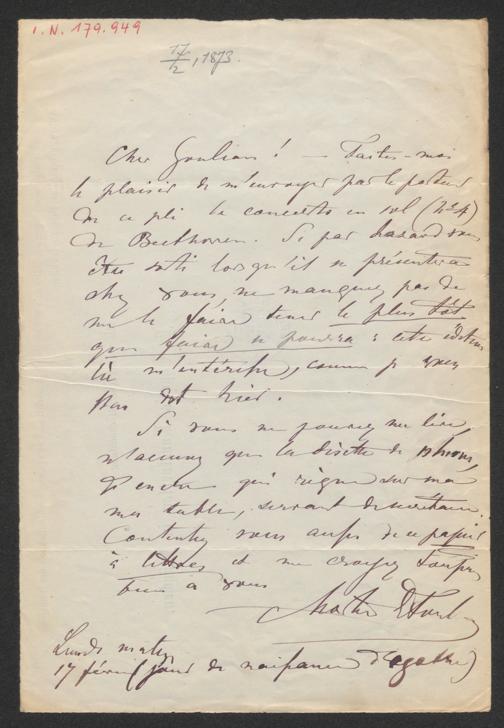 I.N. 179.949
17/2, 1873.
Cher Goulian! — Faites-moi
le plaisir de m'envoyer par le porteur
de ce pli le concerto en sol (No 4)
de Beethoven. Si par hasard vous
êtes sorti lorsqu'il se présentera
chez vous, ne manquez pas de
me le faire tenir le plus tôt
que faire se pourra: cette édition
là m'intéresse, comme je vous
l'ai dit hier.
Si vous ne pouvez me lire,
n'accusez que la disette de
d'encre qui règne sur ma
ma table, servant de secrétaire.
Contentez vous aussi de ce papier
à lettres et me croyez toujours
tout à vous
Lundi matin
17 février (jour de naissance d'